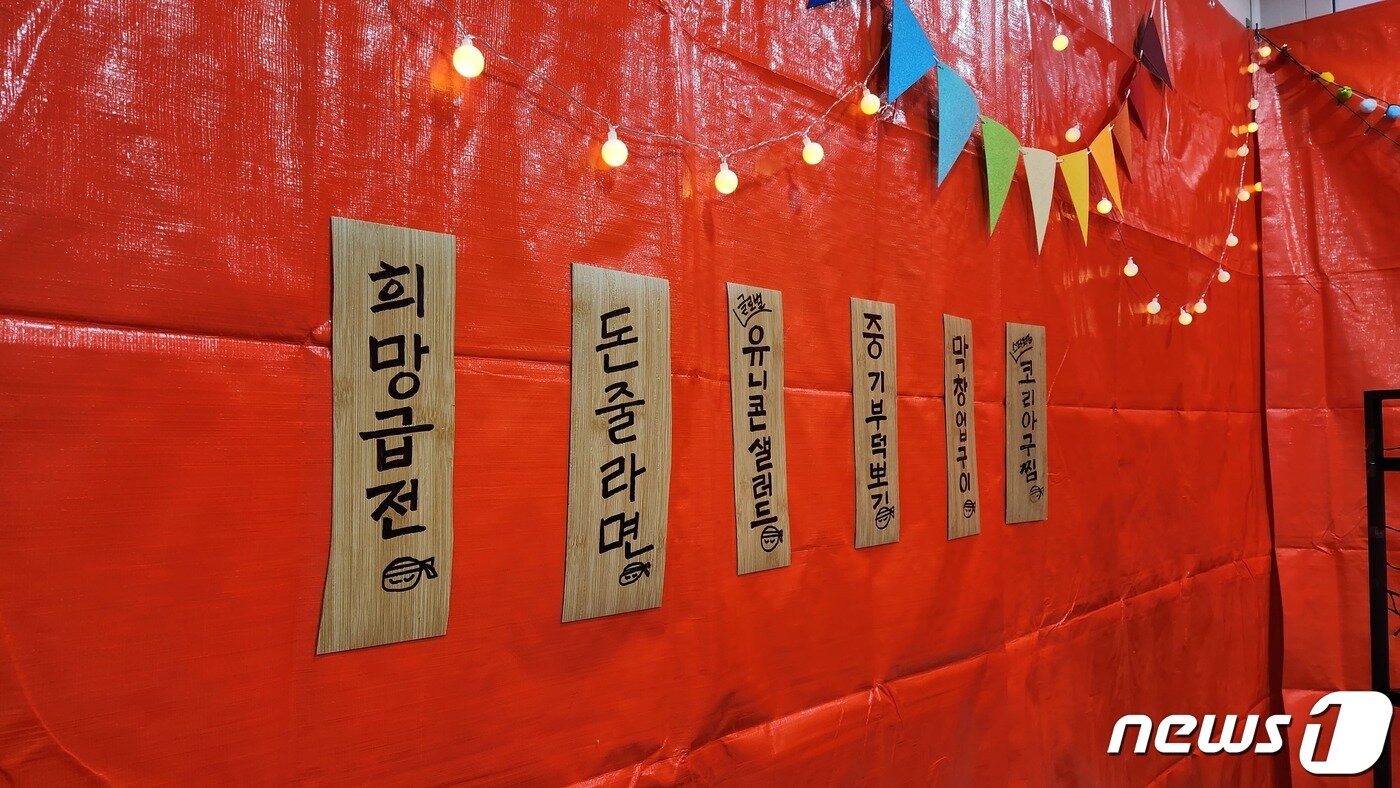 희망급전
돈줄라면
글로벌
유니콘샐러드
중기부덕뽀기
막창업구이
코리아구찜
news1